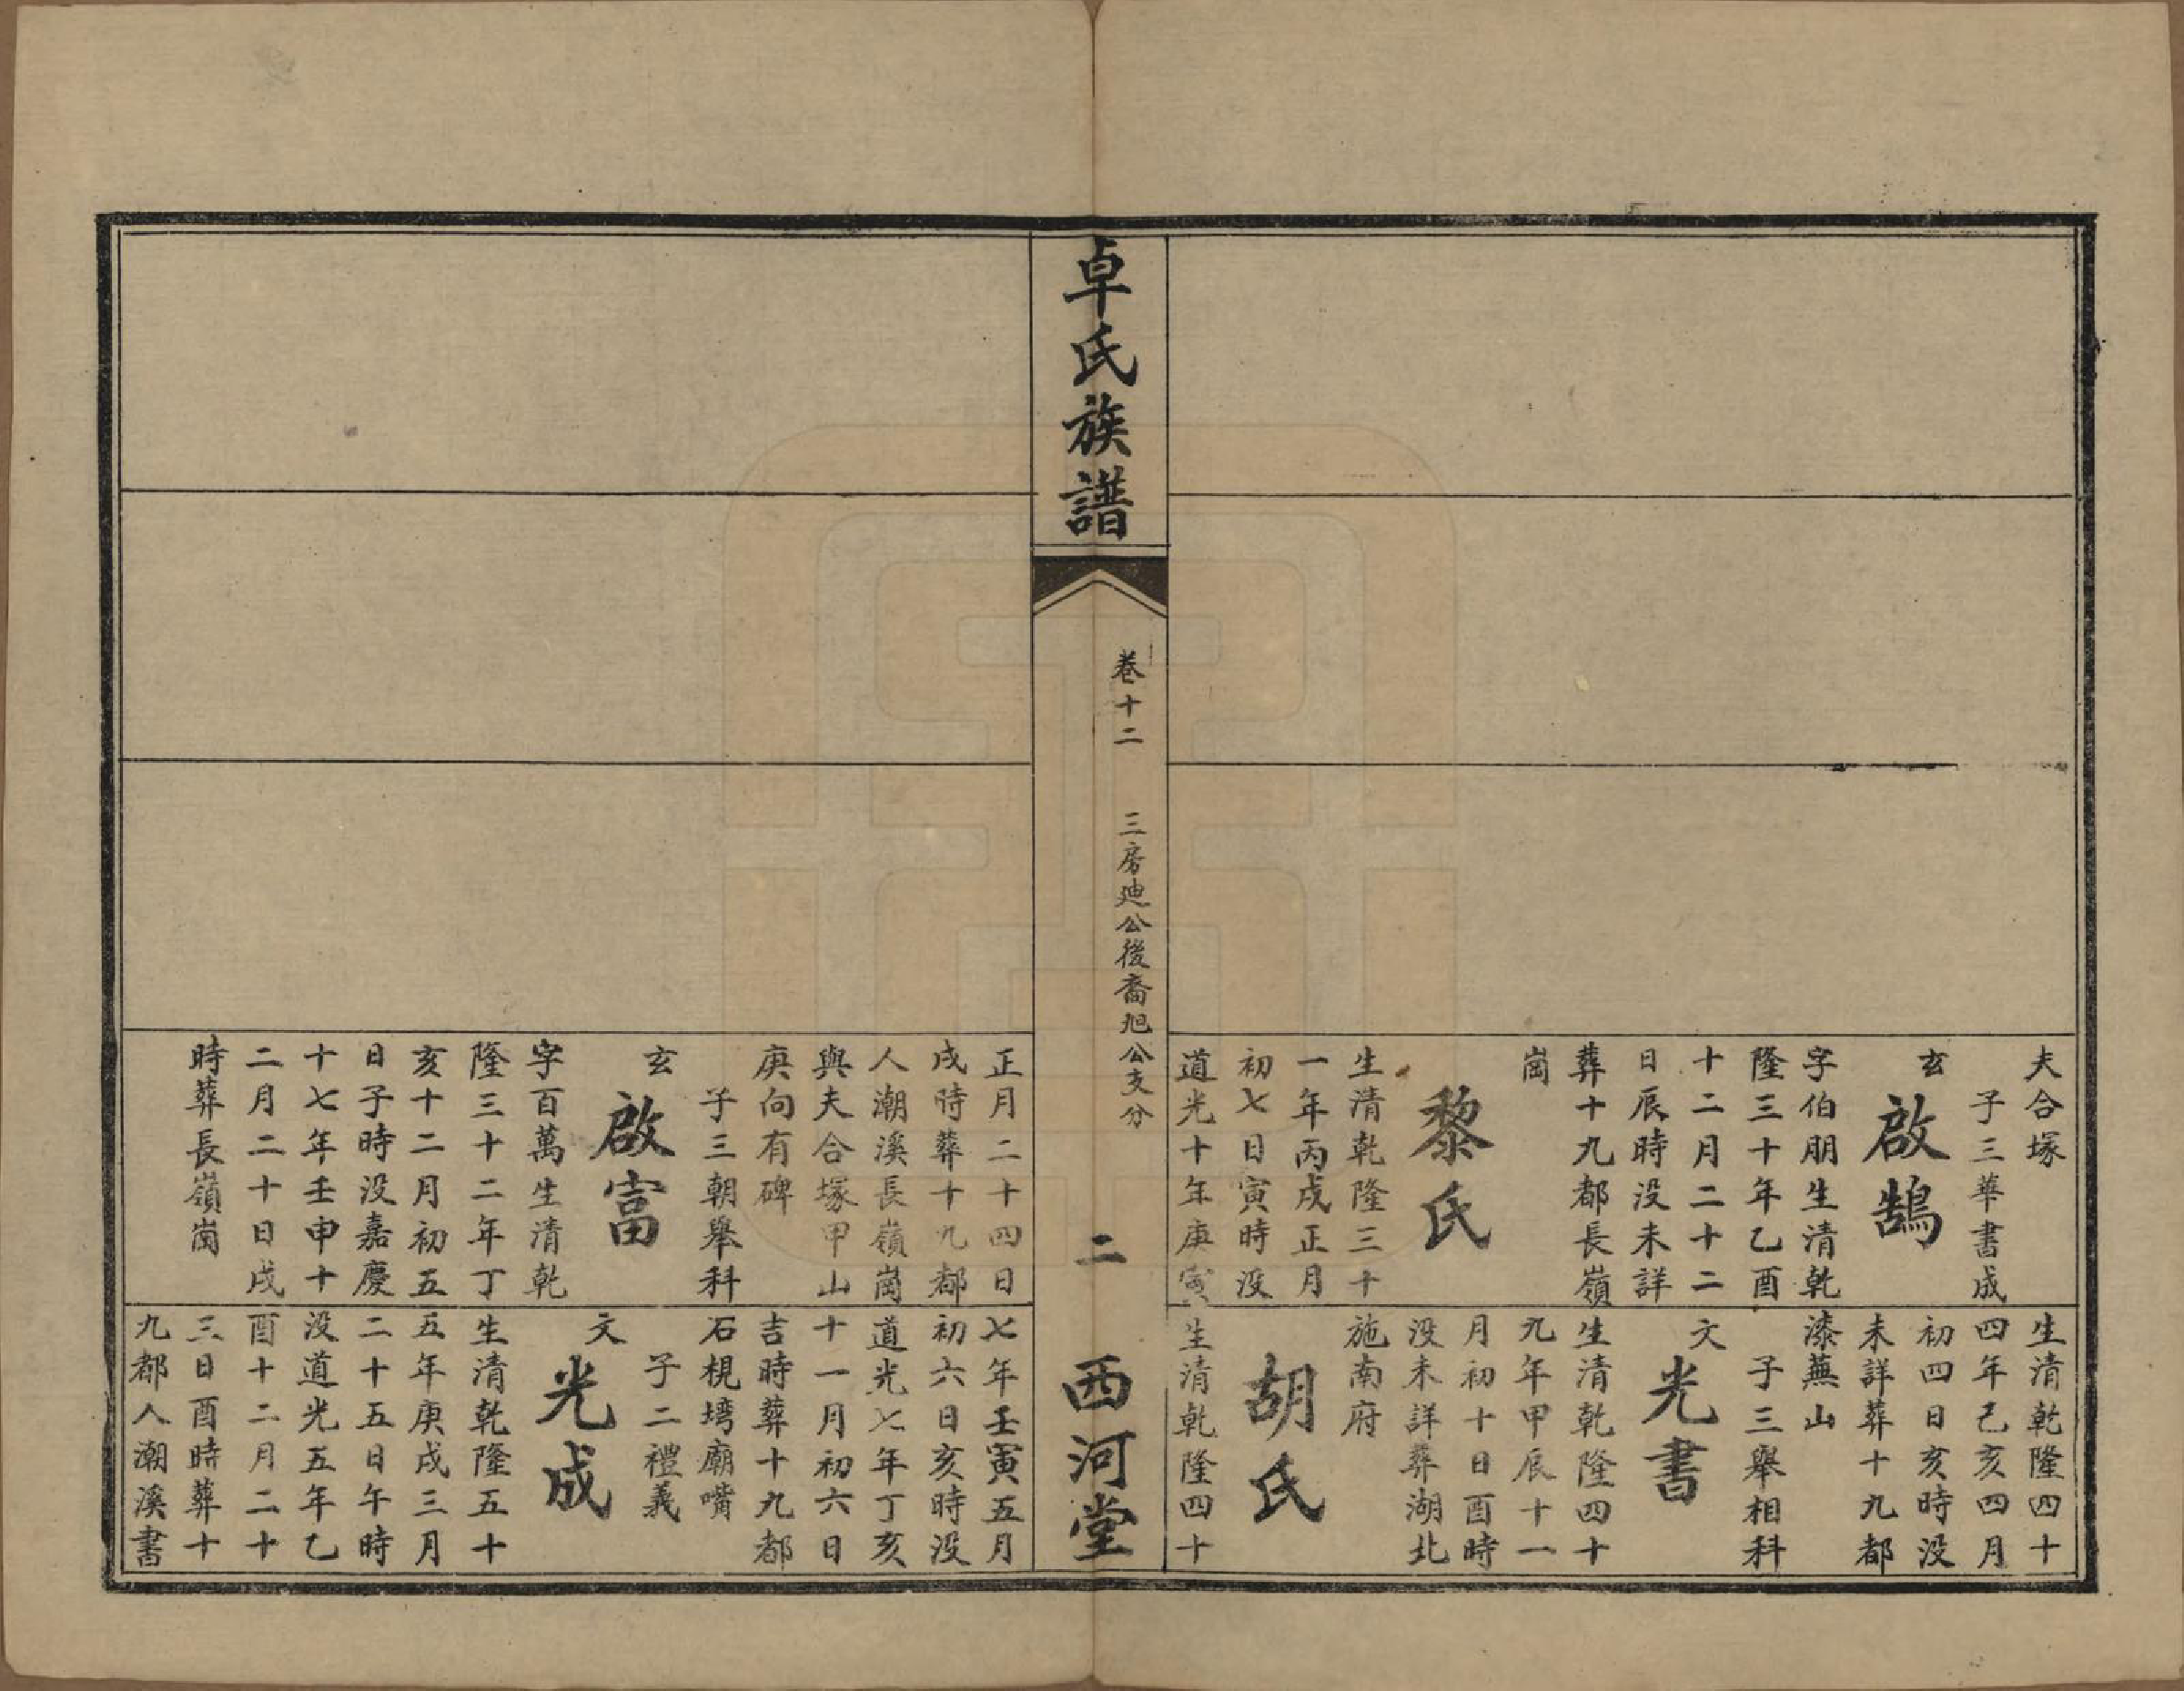 夫合塚
子三華書成
玄
啟鵠
字伯朋生清乾
隆三十年乙酉
十二月二十二
日辰時没未詳
葬十九都長嶺
崗
黎氏
生清乾隆三十
一年丙戌正月
初七日寅時没
道光十年庚寅
生清乾隆四十
四年己亥四月
初四日亥時没
未詳葬十九都
漆蕪山
子三舉相科
文
光書
生清乾隆四十
九年甲辰十一
月初十日酉時
没未詳葬湖北
施南府
胡氏
生清乾隆四十
卓氏族譜
卷十二
三房迪公後裔旭公支分
二
西河堂
正月二十四日
戌時葬十九都
人潮溪長嶺崗
與夫合塚甲山
庚向有碑
子三朝舉科
玄
啟富
字百萬生清乾
隆三十二年丁
亥十二月初五
日子時没嘉慶
十七年壬申十
二月二十日戌
時葬長嶺崗
七年壬寅五月
初六日亥時没
道光七年丁亥
十一月初六日
吉時葬十九都
石梘塆廟嘴
子二禮義
文
光成
生清乾隆五十
五年庚戌三月
二十五日午時
没道光五年乙
酉十二月二十
三日酉時葬十
九都人潮溪書